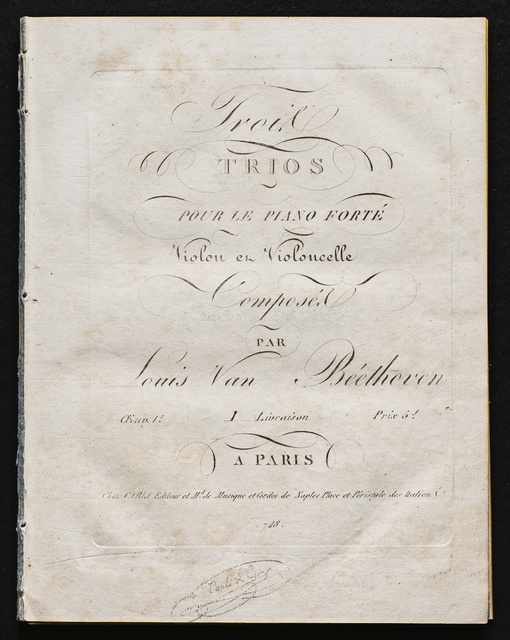 Trois
TRIOS
POUR LE PIANO FORTÉ
Violon et Violoncelle
Composés
PAR
Louis Van Béethoven
Œuv. 1.º I Livraison Prix 5.ᶠ
A PARIS
Chez CARLI Editeur et M.ᵈ de Musique et Cordes de Naples Place et Péristile des Italiens
748.